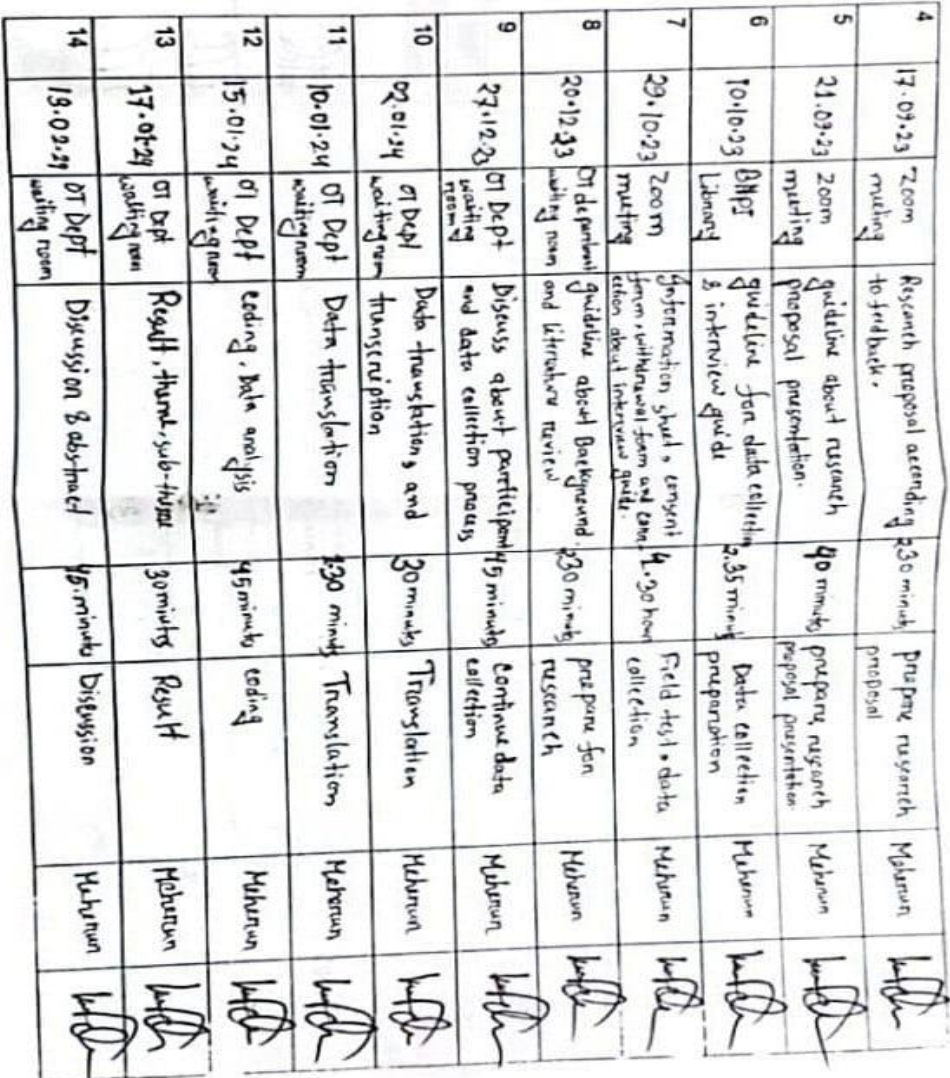 4 17.09.23 Zoom meeting Research proposal according to feedback. 230 minuts prepare research proposal Meherun
5 21.09.23 Zoom meeting guideline about research proposal presentation. 40 minuts prepare research proposal presentation Meherun
6 10.10.23 BHPI Library guideline for data collection & interview guide 2.35 minuts Data collection preparation Meherun
7 29.10.23 Zoom meeting Information sheet, consent form, withdrawal form and corre- ection about interview guide. 4.30 hours Field test, data collection Meherun
8 20.12.23 OT department waiting room guideline about Background and literature review 230 minuts prepare for research Meherun
9 27.12.23 OT Dept waiting room Discuss about participants and data collection process 45 minuts Continue data collection Meherun
10 02.01.24 OT Dept waiting room Data translation, and transcription 30 minuts Translation Meherun
11 10.01.24 OT Dept waiting room Data translation 230 minuts Translation Meherun
12 15.01.24 OT Dept waiting room coding, Data analysis 45 minuts coding Meherun
13 17.01.24 OT Dept waiting room Result, theme, sub-theme 30 minuts Result Meherun
14 19.02.24 OT Dept waiting room Discussion & abstract 45 minuts Discussion Meherun